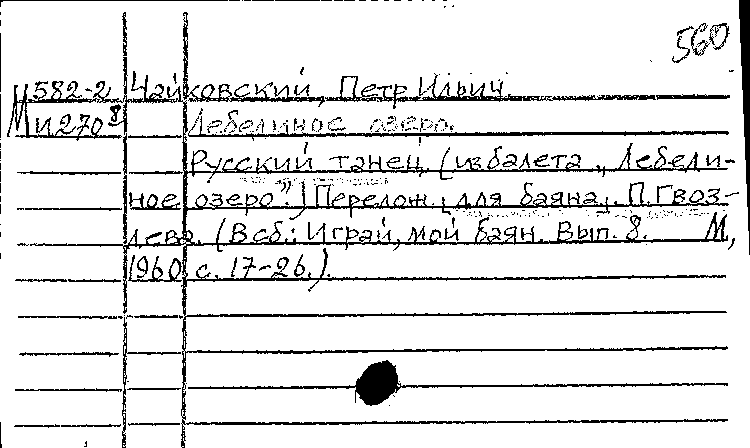 560
М582-2 Чайковский, Петр Ильич.
И270⁸ Лебединое озеро.
Русский танец (из балета „Лебеди-
ное озеро".) Перелож. [для баяна]. П. Гвоз-
дева. (В сб.: Играй, мой баян. Вып. 8. М,
1960 с. 17-26.).